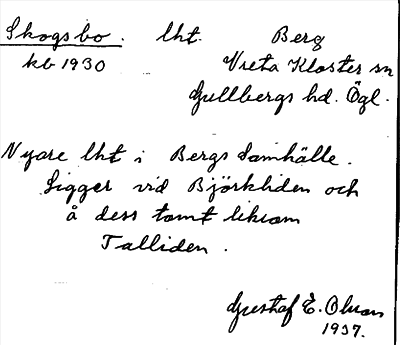 Skogsbo. lht. Berg
kb 1930 Vreta Kloster sn
Gullbergs hd. Ögl.
Nyare lht i Bergs Samhälle.
Ligger vid Björkliden och
å dess tomt liksom
Talliden.
Gustaf E. Olsson
1937.